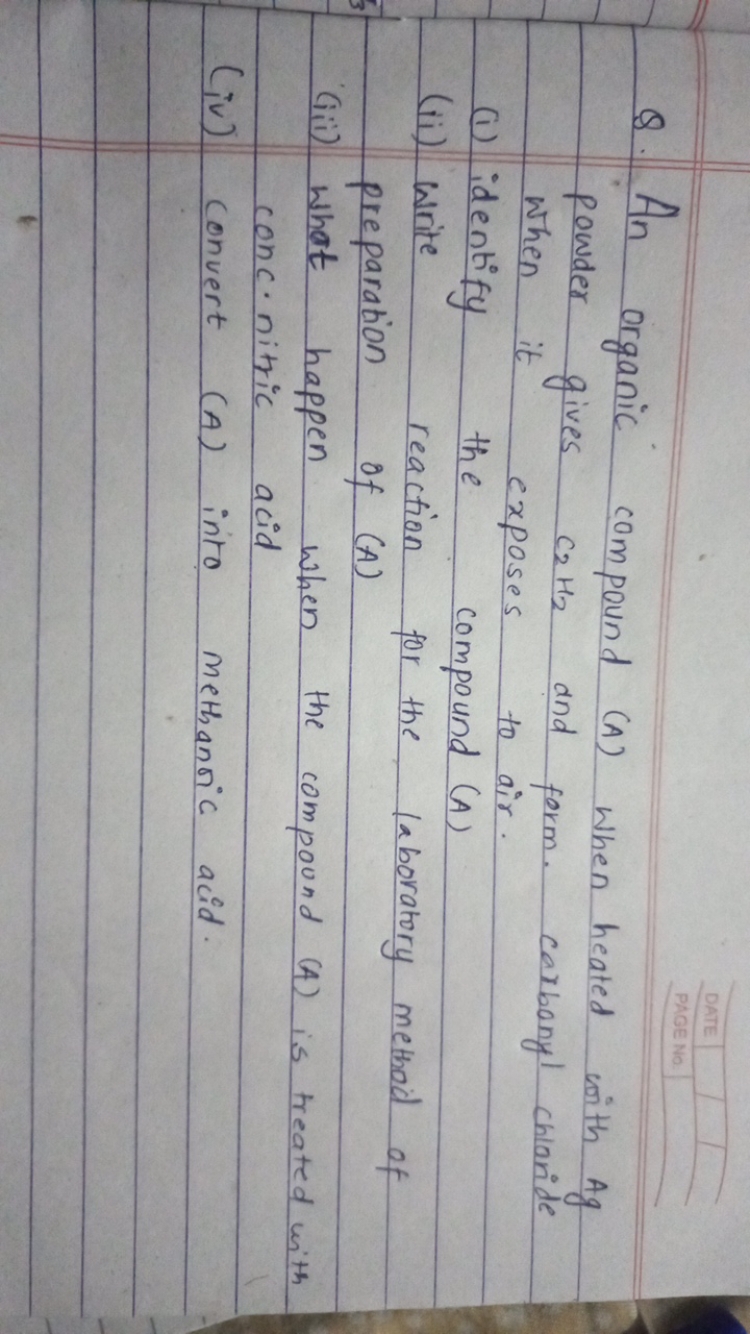 DATE
PAGE No.
Q. An organic compound (A) when heated with Ag
powder gives C2H2 and form. carbonyl chloride
when it exposes to air.
(i) identify the compound (A)
(ii) write reaction for the laboratory method of
preparation of (A)
(iii) what happen when the compound (A) is treated with
conc. nitric acid
(iv) convert (A) into methanoic acid.